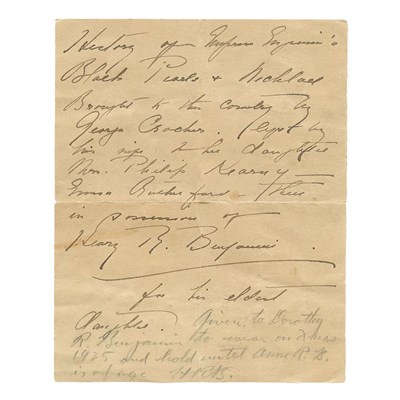 History of Empress Eugenie's
Black Pearls & Necklace
Brought to this country by
George Crocker. Left by
his wife to her daughter
Mrs. Philip Kearny —
Emma Rutherford — Then
in possession of
Henry R. Benjamin.
for his eldest
daughter. Given to Dorothy
R. Benjamin to wear on Xmas
1925 and hold until Anne R. B.
is of age HRB.